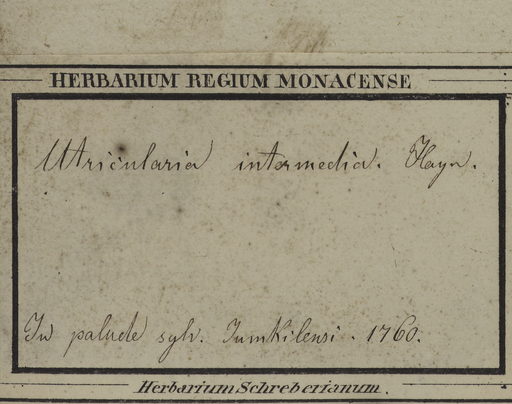 HERBARIUM REGIUM MONACENSE
Utricularia intermedia. Hayn.
In palude sylv. Jumkilensi. 1760.
Herbarium Schreberianum.